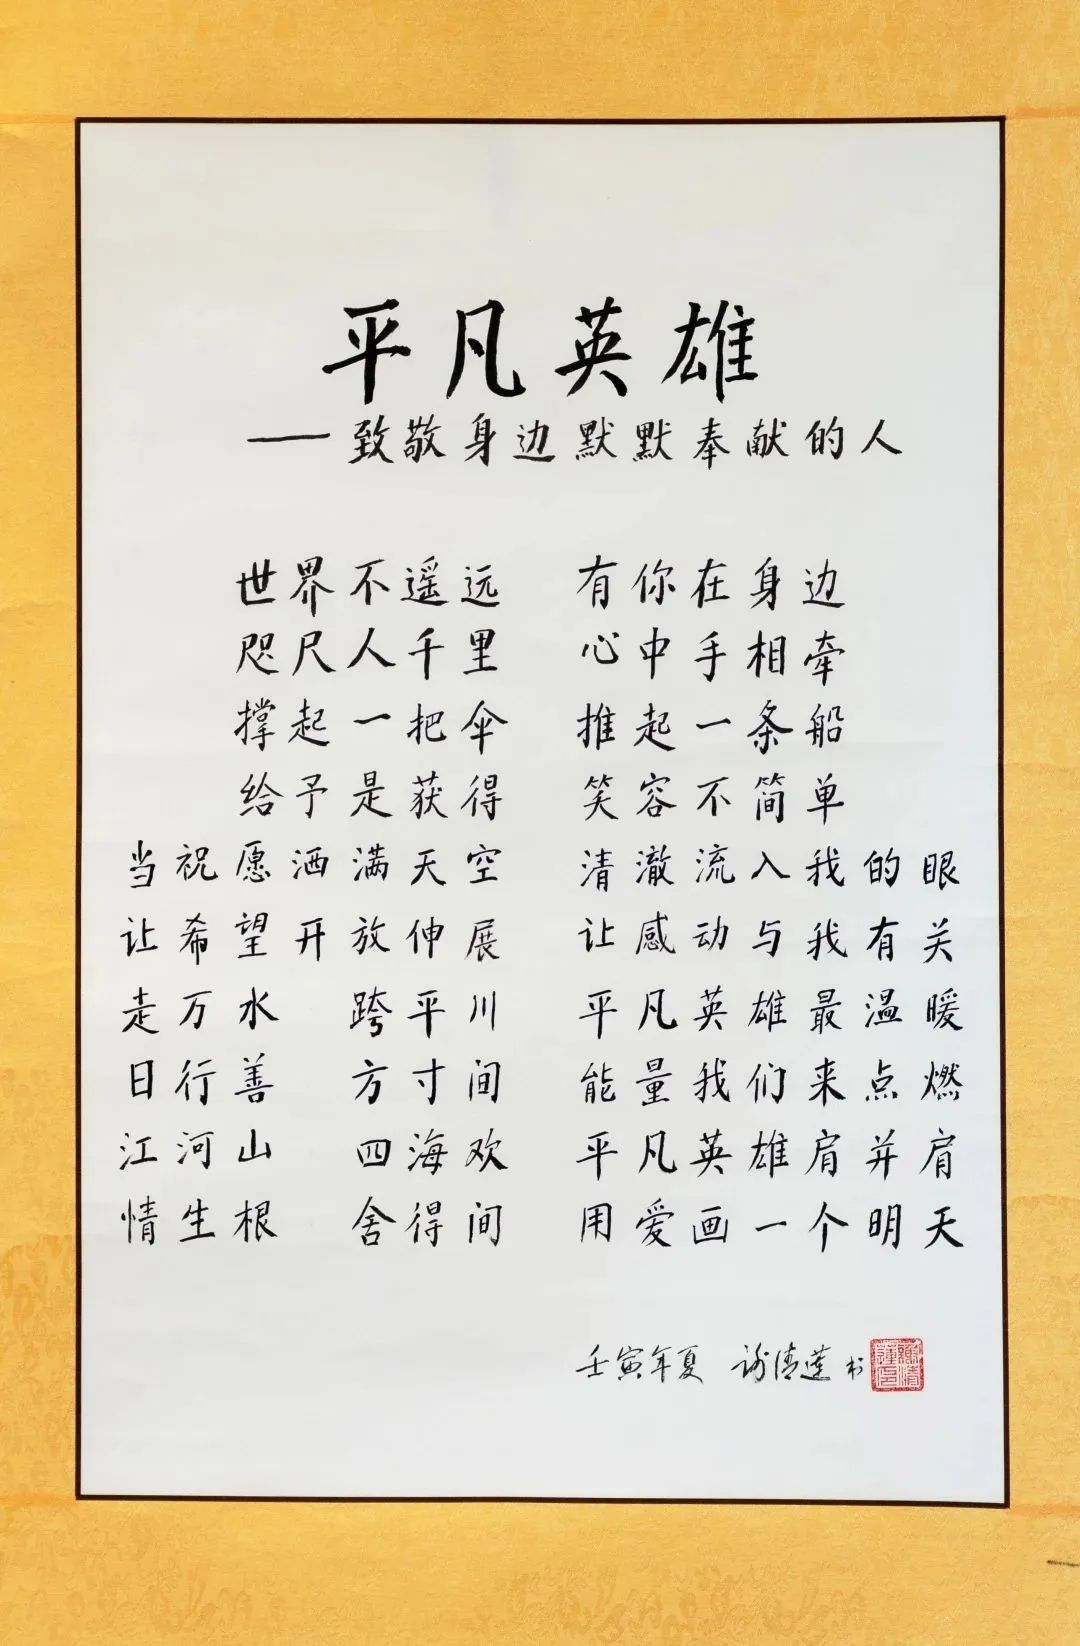 平凡英雄
——致敬身边默默奉献的人
世界不遥远 有你在身边
咫尺人千里 心中手相牵
撑起一把伞 推起一条船
给予是获得 笑容不简单
当祝愿洒满天空 清澈流入我的眼
让希望开放伸展 让感动与我有关
走万水 跨平川 平凡英雄最温暖
日行善 方寸间 能量我们来点燃
江河山 四海欢 平凡英雄肩并肩
情生根 舍得间 用爱画一个明天
壬寅年夏 谢清莲书